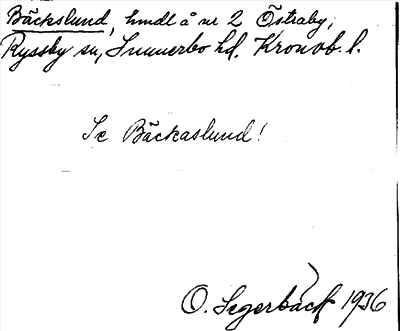 Bäckslund, hmdl å nr 2 Östraby,
Ryssby sn, Sunnerbo hd. Kronob. l.
Se Bäckaslund!
O. Segerbäck 1936